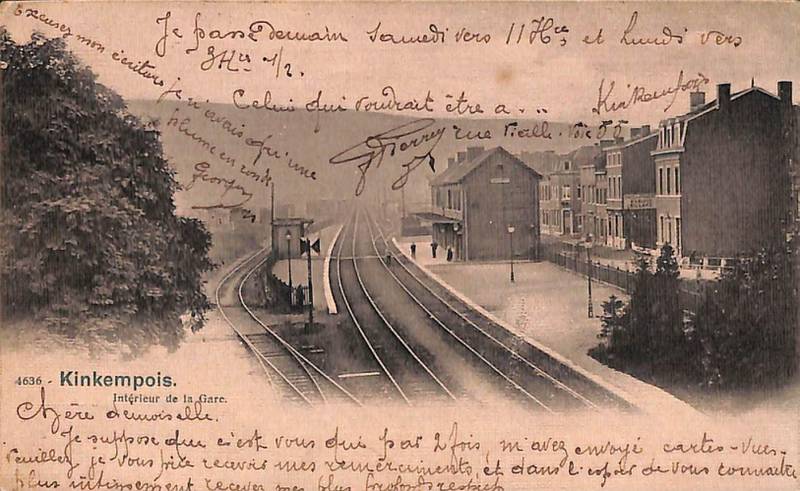 Je passe demain Samedi vers 11 Hres et Lundi vers
3Hres 1/2.
Celui qui voudrait être a... Kinkempois
GPierrey rue Vieille-Voie 55
Excusez mon écriture je n'avais qu'une
plume en
Georges
4636 - Kinkempois.
Intérieur de la Gare.
Chère demoiselle.
Je suppose que c'est vous qui par 2 fois, m'avez envoyé cartes-vues.
Veuillez je vous prie recevoir mes remerciments, et dans l'espoir de vous connaître
plus intimement recevez mes plus profonds respects